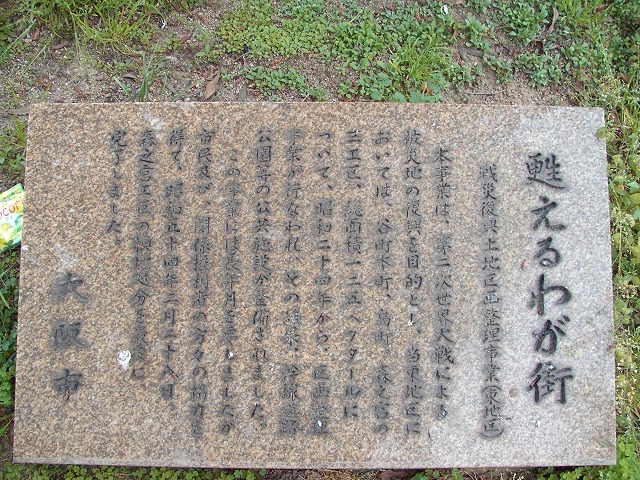 甦えるわが街
戦災復興土地区画整理事業(東地区)
本事業は、第二次世界大戦による
被災地の復興を目的とし、当東地区に
おいては、谷町本町、鳥町、森之宮の
三工区、総面積一二五ヘクタールに
ついて、昭和二十四年から、区画整理
事業が行なわれ、その結果、幹線道路
公園等の公共施設が整備されました。
この事業には長年月を要しましたが
市民及び、関係権利者の方々の協力を
得て、昭和五十四年二月二十八日
森之宮工区の換地処分を最後に
完了しました。
大阪市